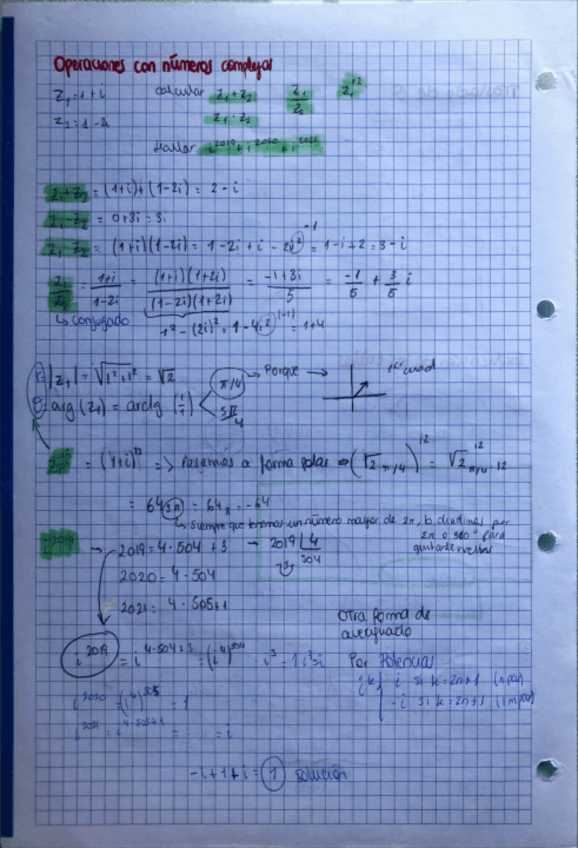 Operaciones con números complejos
z₁=1+i   calcular   z₁+z₂   z₁/z₂   z₁¹²
z₂=1-2i   z₁·z₂
Hallar i²⁰¹⁹+i²⁰²⁰+i²⁰²¹
z₁+z₂ = (1+i)+(1-2i) = 2-i
z₁-z₂ = 0+3i = 3i
z₁·z₂ = (1+i)(1-2i) = 1-2i+i-2i² ⁻¹ = 1-i+2 = 3-i
z₁/z₂ = (1+i)/(1-2i) = (1+i)(1+2i)/(1-2i)(1+2i) = (-1+3i)/5 = -1/5 + 3/5 i
↳ conjugado   1²-(2i)² = 1-4i² (-1) = 1+4
r=|z₁| = √(1²+1²) = √2   π/4 → Porque →   1er cuad
θ=arg(z₁) = arctg (1/1) <   5π/4
z₁¹² = (1+i)¹² => Pasamos a forma polar => (√2 π/4)¹² = √2¹² π/4·12
= 64 3π = 64 π = -64
↳ Siempre que tenemos un número mayor de 2π, lo dividimos por
2π o 360° para
quitarle vueltas
i²⁰¹⁹ → 2019=4·504+3 → 2019 | 4
3   504
2020=4·504
2021= 4·505+1
Otra forma de
averiguarlo
i²⁰¹⁹ = i⁴·⁵⁰⁴⁺³ = (i⁴)⁵⁰⁴ · i³ = 1·i³=-i   Por Potencias
iᵏ {   i si k=2n+1 (npar)
i²⁰²⁰ = (i⁴)⁵⁰⁵ = 1   -i si k=2n+1 (impar)
i²⁰²¹ = i⁴·⁵⁰⁵⁺¹ = ..... = i
-i+1+i = 1 solución